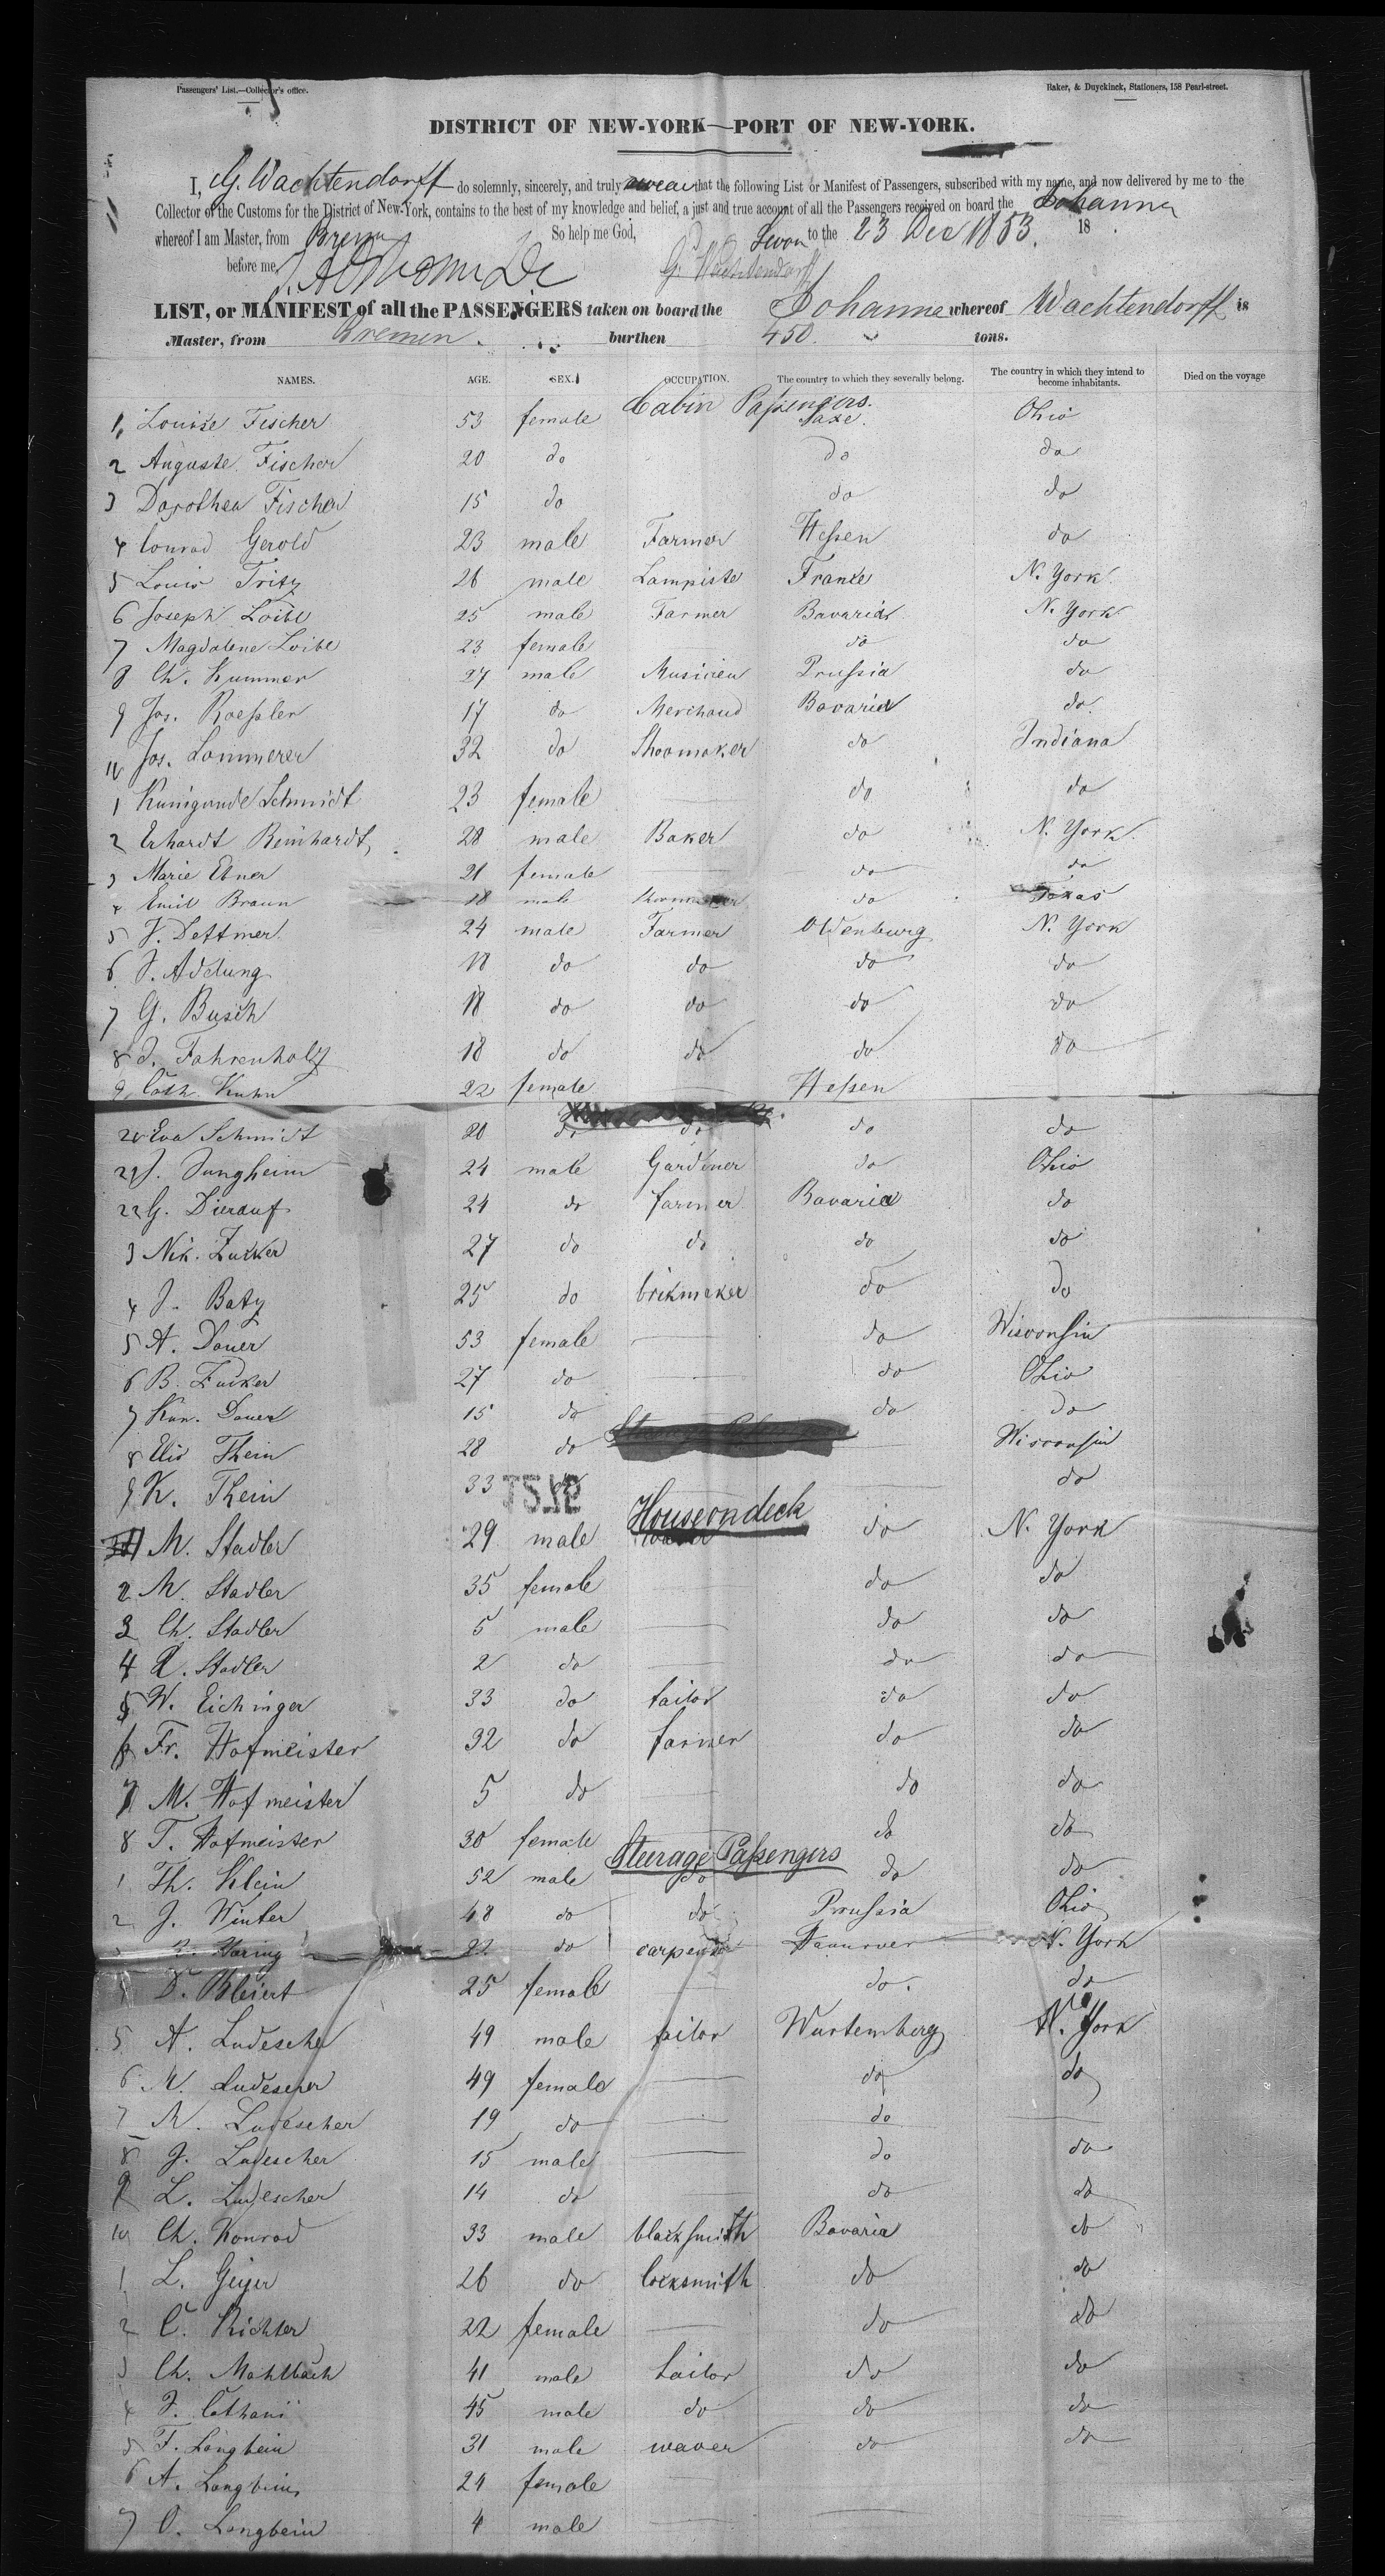 Passengers' List.—Collector's office.
Baker, & Duyckinck, Stationers, 158 Pearl-street.
DISTRICT OF NEW-YORK—PORT OF NEW-YORK.
I, G. Wachtendorff do solemnly, sincerely, and truly swear that the following List or Manifest of Passengers, subscribed with my name, and now delivered by me to the
Collector of the Customs for the District of New-York, contains to the best of my knowledge and belief, a just and true account of all the Passengers received on board the Johanna
whereof I am Master, from Bremen So help me God, Sworn to the 23 Dec 1853. 18
before me, G. Wachtendorff
LIST, or MANIFEST of all the PASSENGERS taken on board the Johanna whereof Wachtendorff is
Master, from Bremen. burthen 450. tons.
NAMES. AGE. SEX. OCCUPATION. The country to which they severally belong. The country in which they intend to become inhabitants. Died on the voyage
Cabin Passengers.
1, Louise Fischer 53 female Saxe. Ohio
2 Auguste Fischer 20 do do do
3 Dorothea Fischer 15 do do do
4 Conrad Gerold 23 male Farmer Hessen do
5 Louis Fritz 26 male Lampiste France N. York
6 Joseph Loibl 25 male Farmer Bavaria N. York
7 Magdalene Loibl 23 female do do
8 Ch. Kummer 27 male Musicien Prussia do
9 Jos. Roessler 17 do Merchand Bavaria do
10 Jos. Lommerer 32 do Shoomaker do Indiana
1 Kunigunde Schmidt 23 female do do
2 Erhardt Reinhardt, 28 male Baker do N. York
3 Marie Ebner 21 female do do
4 Emil Braun 18 male do Texas
5 J. Dettmer 24 male Farmer Oldenburg N. York
6 J. Adelung 18 do do do do
7 G. Busch 18 do do do do
8 J. Fahrenholz 18 do do do do
9, Cath. Kuhn 22 female Hessen
20 Eva Schmidt 20 do do do do
21 J. Jungheim 24 male Gardiner do Ohio
22 G. Dierauf 24 do farmer Bavaria do
3 Nik. Zucker 27 do do do do
4 J. Batz 25 do brikmaker do do
5 A. Dauer 53 female do Wisconsin
6 B. Zucker 27 do do Ohio
7 Kun. Dauer 15 do do do
8 Elis Thein 28 do Wisconsin
9 K. Thein 33 do
House on deck
M. Stadler 29 male do N. York
2 M. Stadler 35 female do do
3 Ch. Stadler 5 male do do
4 Stadler 2 do do do
5 W. Eichinger 33 do tailor do do
6 Fr. Hofmeister 32 do farmer do do
7 M. Hofmeister 5 do do do
8 T. Hofmeister 30 female do do
Steerage Passengers
1 Th. Klein 52 male do do do
2 J. Winter 48 do do Prussia Ohio
Haring 22 do carpenter Hannover N. York
25 female do. do
5 A. Ludescher 49 male tailor Wurtemberg N. York
6 M. Ludescher 49 female do do
7 M. Ludescher 19 do do
8 J. Ludescher 15 male do do
9 L. Ludescher 14 do do do
10 Ch. Konrad 33 male blacksmith Bavaria do
1 L. Geiger 26 do locksmith do do
2 C. Richter 22 female do do
3 Ch. Mahlbach 41 male tailor do do
4 J. Cathani 45 male do do do
5 F. Langbein 31 male waver do do
6 A. Langbein 24 female
7 O. Langbein 4 male